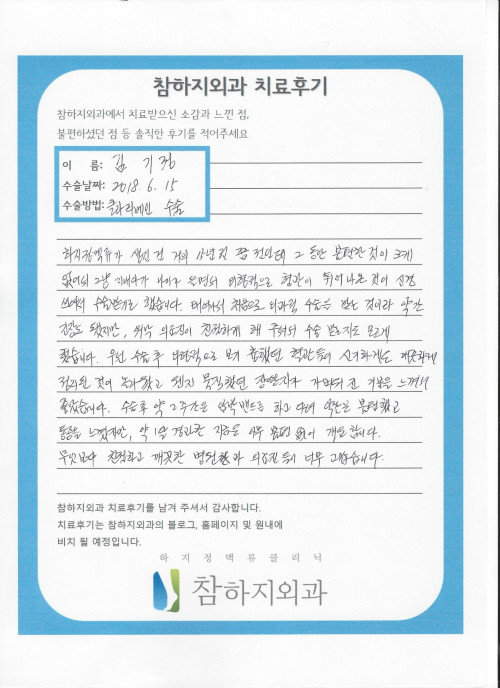 참하지외과 치료후기
참하지외과에서 치료받으신 소감과 느낀 점,
불편하셨던 점 등 솔직한 후기를 적어주세요
이 름: 김 기
수술날짜: 2018. 6. 15
수술방법: 클라리베인 수술
하지정맥류가 생긴 건 거의 10년 전인데 그 동안 불편한 것이 크게
없어서 그냥 지내다가 나이가 들면서 외형적으로 혈관이 튀어나온 것이 신경
쓰여서 수술받기로 했습니다. 태어나서 처음으로 외과적 수술을 받는 것이라 약간
긴장도 됐지만, 워낙 의료진이 친절하게 해 주셔서 수술 받는지도 모르게
했습니다. 우선 수술 후 외형적으로 보기 흉했던 혈관들이 신기하게도 깨끗하게
정리된 것이 놀라웠고 왠지 묵직했던 장딴지가 가벼워진 기분을 느껴서
좋았습니다. 수술 후 약 2주간은 압박밴드를 하고 다녀 약간은 불편했고
통증을 느꼈지만, 약 1달 경과한 지금은 아무 불편 없이 개운합니다.
무엇보다 친절하고 깨끗한 병원 과 의료진들이 너무 고맙습니다.
참하지외과 치료후기를 남겨 주셔서 감사합니다.
치료후기는 참하지외과의 블로그, 홈페이지 및 원내에
비치 될 예정입니다.
하지정맥류클리닉
참하지외과